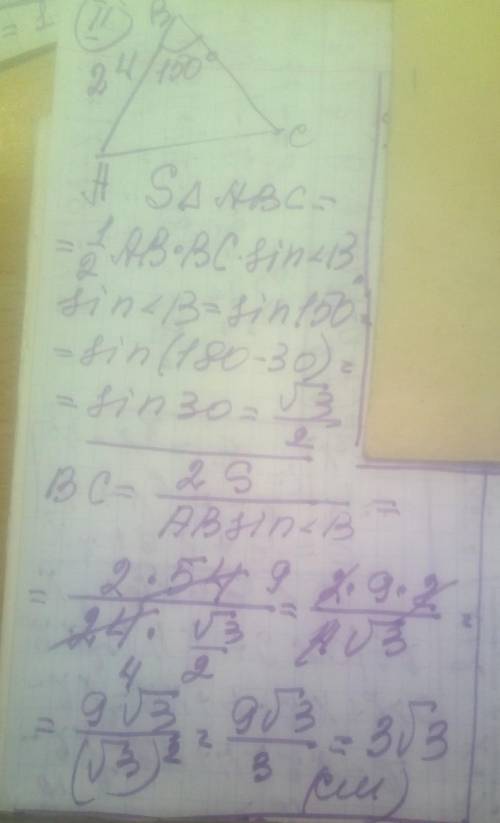 = 1
II
B
24 150°
C
A S△ABC=
= 1/2 AB·BC·sin<B
sin<B=sin150=
=sin(180-30)=
=sin30= √3/2
BC= 2S/ABsin<B =
= 2·54 9/24·√3/2 4 = 2·9·2/4√3 =
= 9√3/(√3)² = 9√3/3 = 3√3
(см)